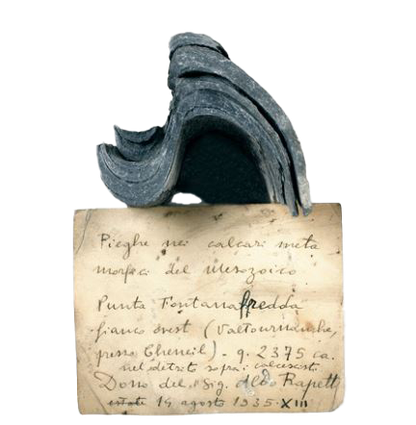 Pieghe nei calcari meta
morfici del Mesozoico
Punta Fontanaffredda
fianco ovest (Valtournanche,
presso Cheneil) - q. 2375 ca.
nel detrito sopra i calcescisti
Dono del Sig. Aldo Rapetti
estate 19 agosto 1935-XIII